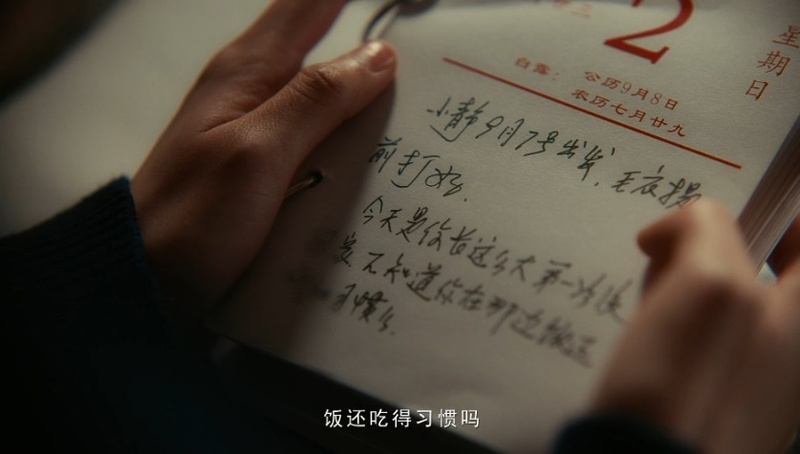 2
星期日
白露： 公历9月8日
农历七月廿九
小静9月7号出发，毛衣提
前打好。
今天是你长这么大第一次
不知道你在那边饭还
习惯么。
饭还吃得习惯吗